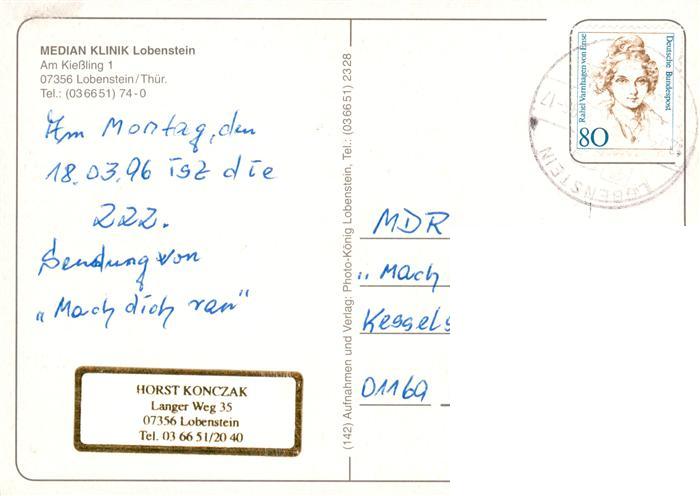 MEDIAN KLINIK Lobenstein
Am Kießling 1
07356 Lobenstein/Thür.
Tel.: (03 66 51) 74-0
Am Montag, den
18.03.96 ist die
222.
Sendung von
„Mach dich ran"
HORST KONCZAK
Langer Weg 35
07356 Lobenstein
Tel. 03 66 51/20 40
(142) Aufnahmen und Verlag: Photo-König Lobenstein, Tel.: (03 66 51) 23 28
Rahel Varnhagen von Ense
Deutsche Bundespost
80
LOBENSTEIN
MDR
„Mach
Kessels
01169